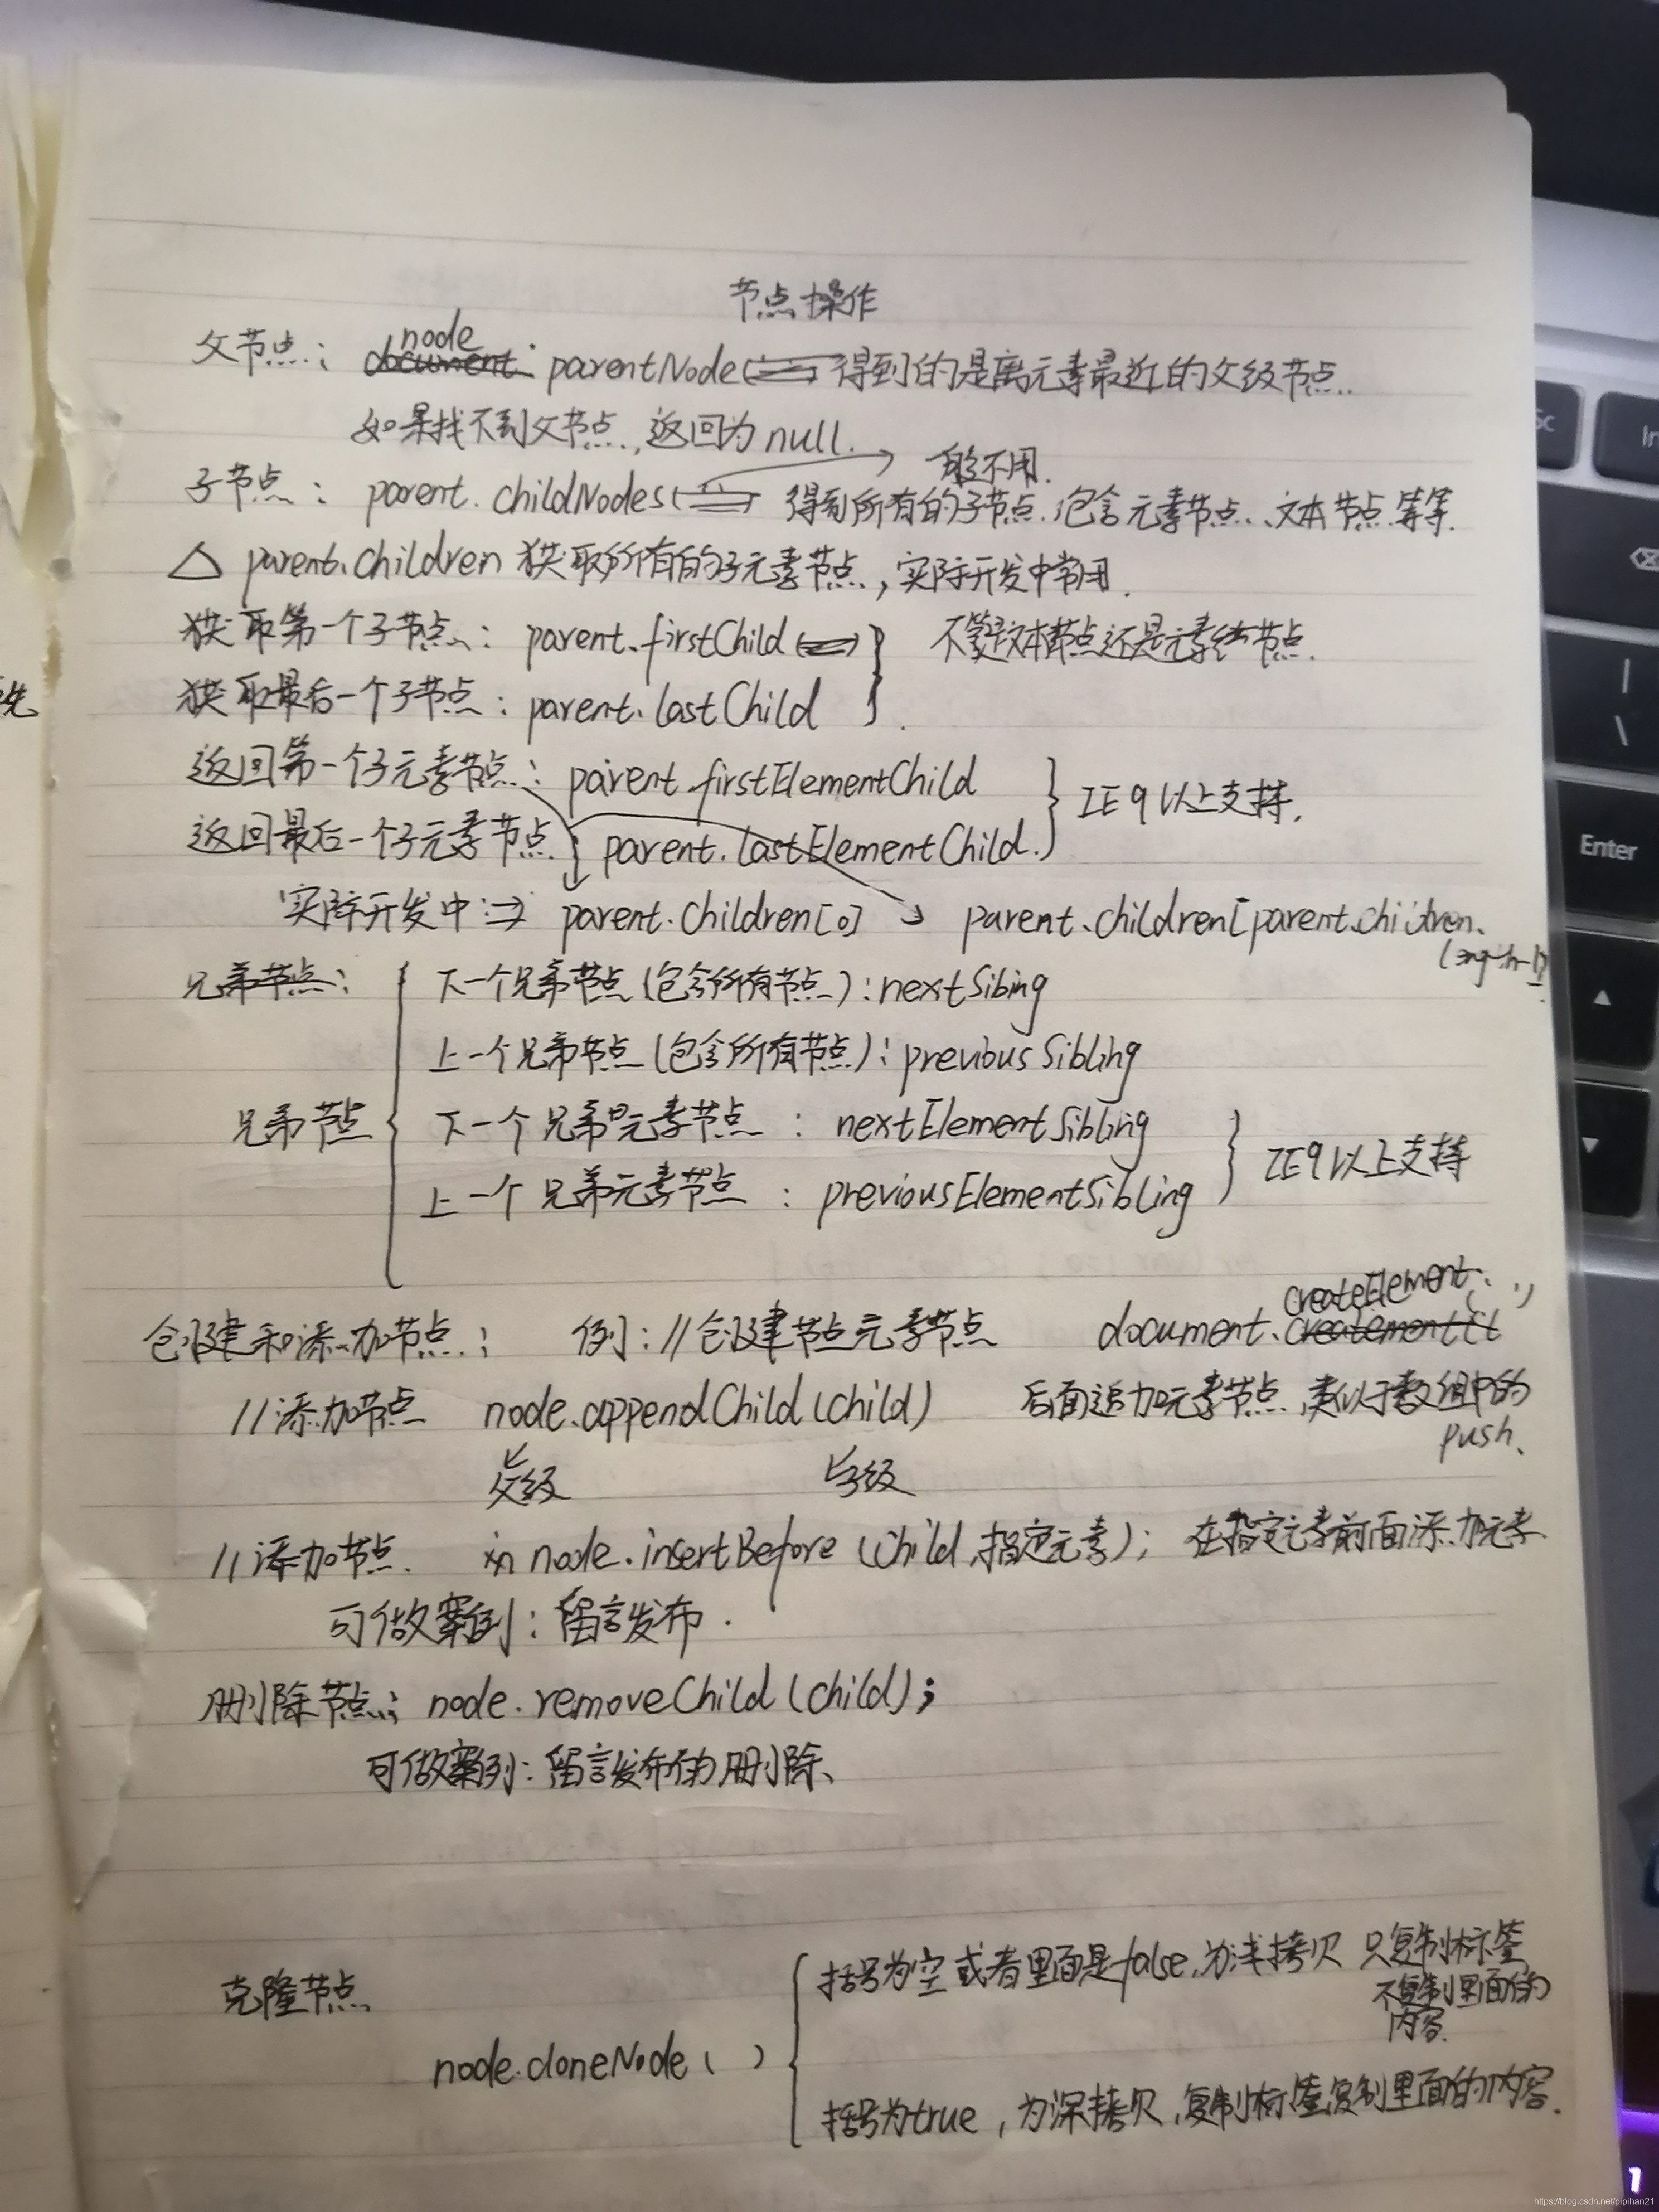 节点操作
父节点: node.parentNode 得到的是离元素最近的父级节点.
如果找不到父节点, 返回为null.
般不用.
子节点: parent.childNodes 得到所有的子节点.包含元素节点、文本节点等等.
△ parent.children 获取所有的子元素节点,实际开发中常用.
获取第一个子节点: parent.firstChild } 不管是文本节点还是元素节点.
获取最后一个子节点: parent.lastChild
返回第一个子元素节点: parent.firstElementChild } IE9以上支持.
返回最后一个子元素节点. parent.lastElementChild.
实际开发中:⇒ parent.children[0] parent.children[parent.children.
length-1]
兄弟节点: 下一个兄弟节点(包含所有节点): nextSibing
上一个兄弟节点(包含所有节点): previousSibling
兄弟节点 { 下一个兄弟元素节点 : nextElementSibling } IE9以上支持
上一个兄弟元素节点 : previousElementSibling
创建和添加节点: 例: //创建节点元素节点 document.createElement('')
//添加节点 node.appendChild(child) 后面追加元素节点,类似于数组中的
push.
父级 子级
//添加节点. node.insertBefore(child,指定元素); 在指定元素前面添加元素
可做案例: 留言发布.
删除节点: node.removeChild(child);
可做案列: 留言发布的删除、
括号为空或者里面是false,为浅拷贝 只复制标签
克隆节点 不复制里面的
内容.
node.cloneNode( )
括号为true,为深拷贝,复制标签复制里面的内容.
Enter
1
https://blog.csdn.net/pipihan21